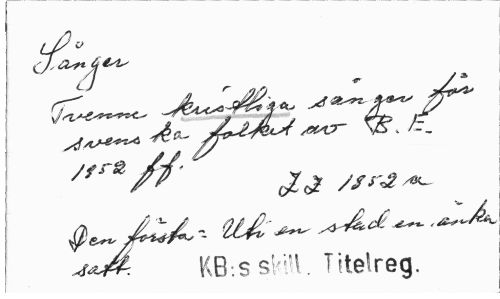 Sånger
Tvenne kristliga sånger för
svenska folket av B. E.
1852 ff.
J J 1852 a
Den första = Uti en stad en änka
satt. KB:s skill. Titelreg.